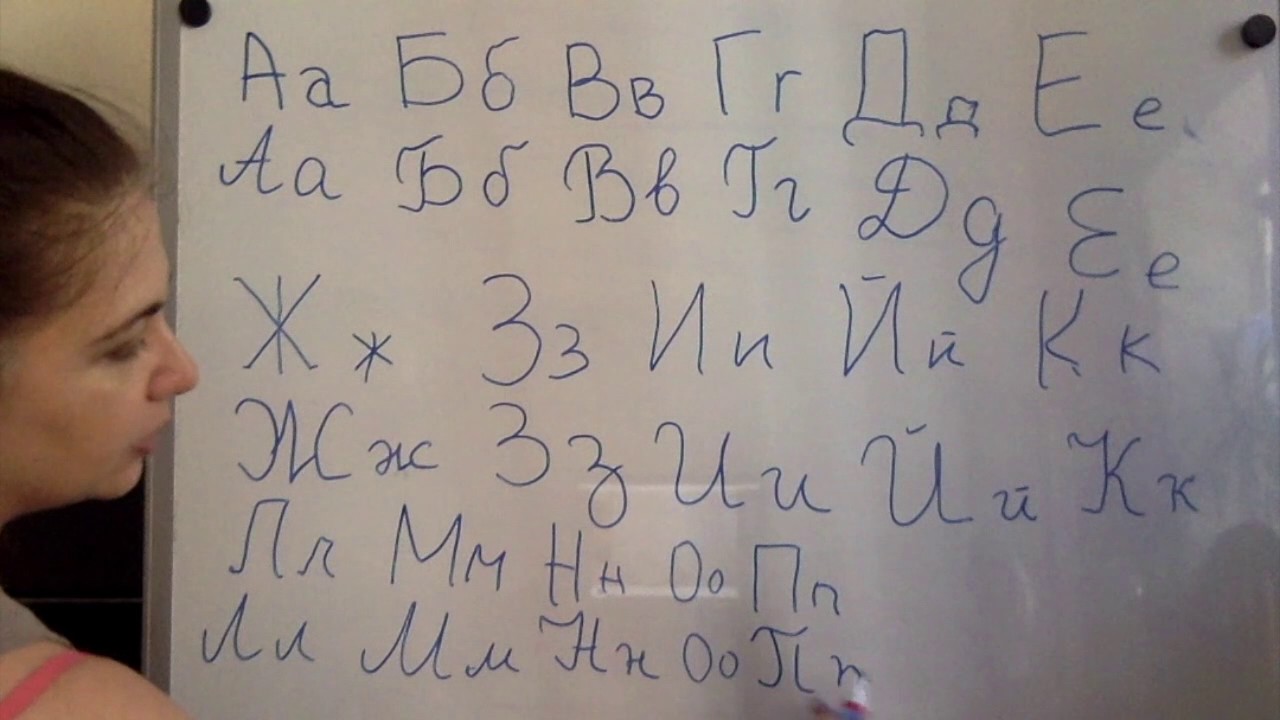 Аа Бб Вв Гг Дд Ее
Аа Бб Вв Гг Дд Ее
Жж Зз Ии Йй Кк
Жж Зз Ии Йй Кк
Лл Мм Нн Оо Пп
Лл Мм Нн Оо Пп